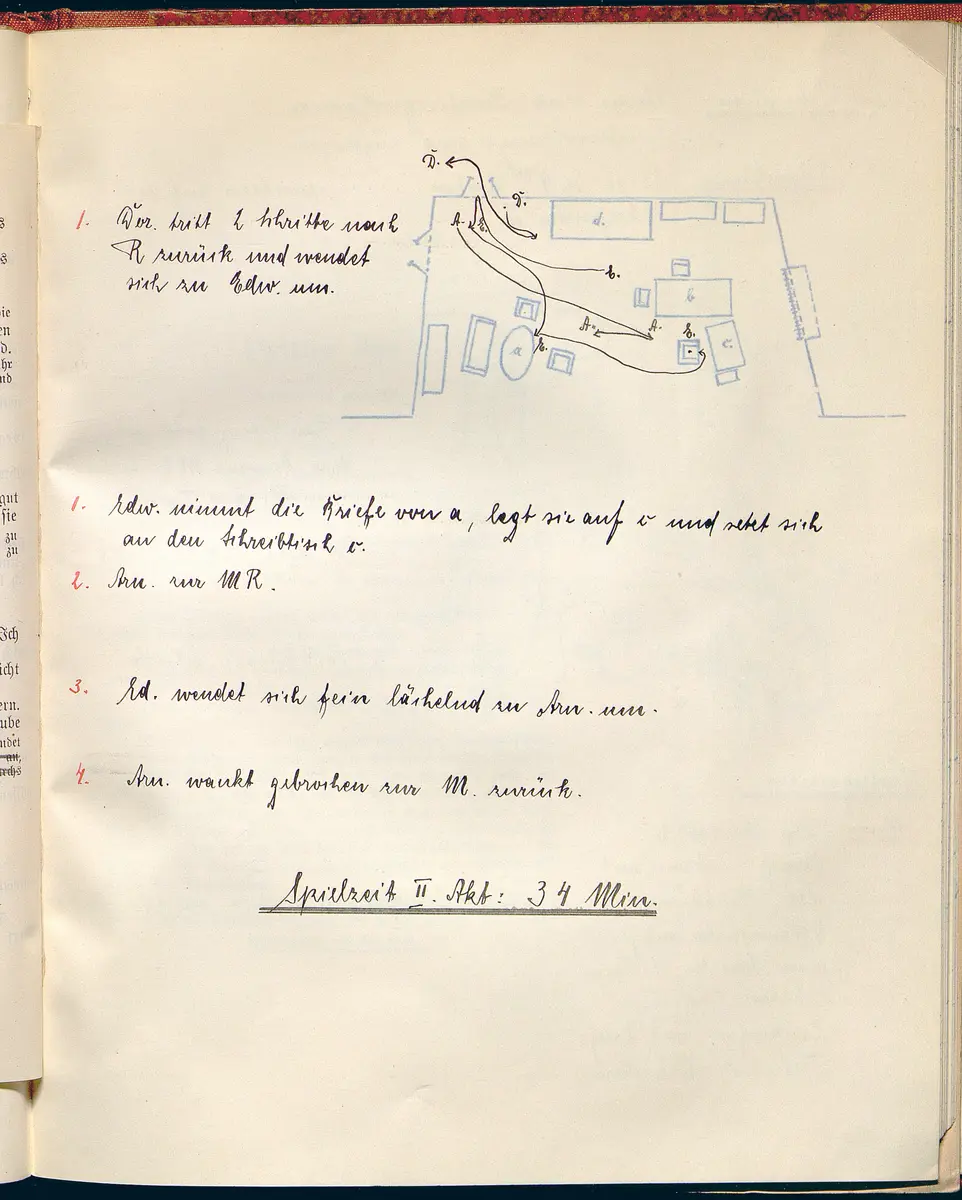 D.
D.
1. Dor. tritt 2 Schritte nach
R zurück und wendet
sich zu Edw. um.
A. E.
d.
E.
b
A. A. E.
a E. c.
1. Edw. nimmt die Briefe von a, legt sie auf c und setzt sich
an den Schreibtisch c.
2. Arn. zur MR.
3. Ed. wendet sich fein lächelnd zu Arn. um.
4. Arn. wankt gebrochen zur M. zurück.
Spielzeit II. Akt: 34 Min.
gut
sie
zu
zu
Ich